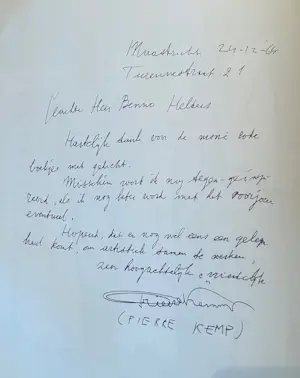 Maastricht 24-12-64
Turennestraat 21
Heer Benno
Hartelijk dank voor de mooie rode
met gedicht.
Misschien word ik nog tegen-geïnspi-
reerd, als ik nog beter word met het voorjaar
eventueel.
Hopend, dat er nog wel eens een gelegen-
heid komt, om artistiek samen te werken,
zeer hoogachtelijk en vriendelijk
Pierre Kemp
(PIERRE KEMP)